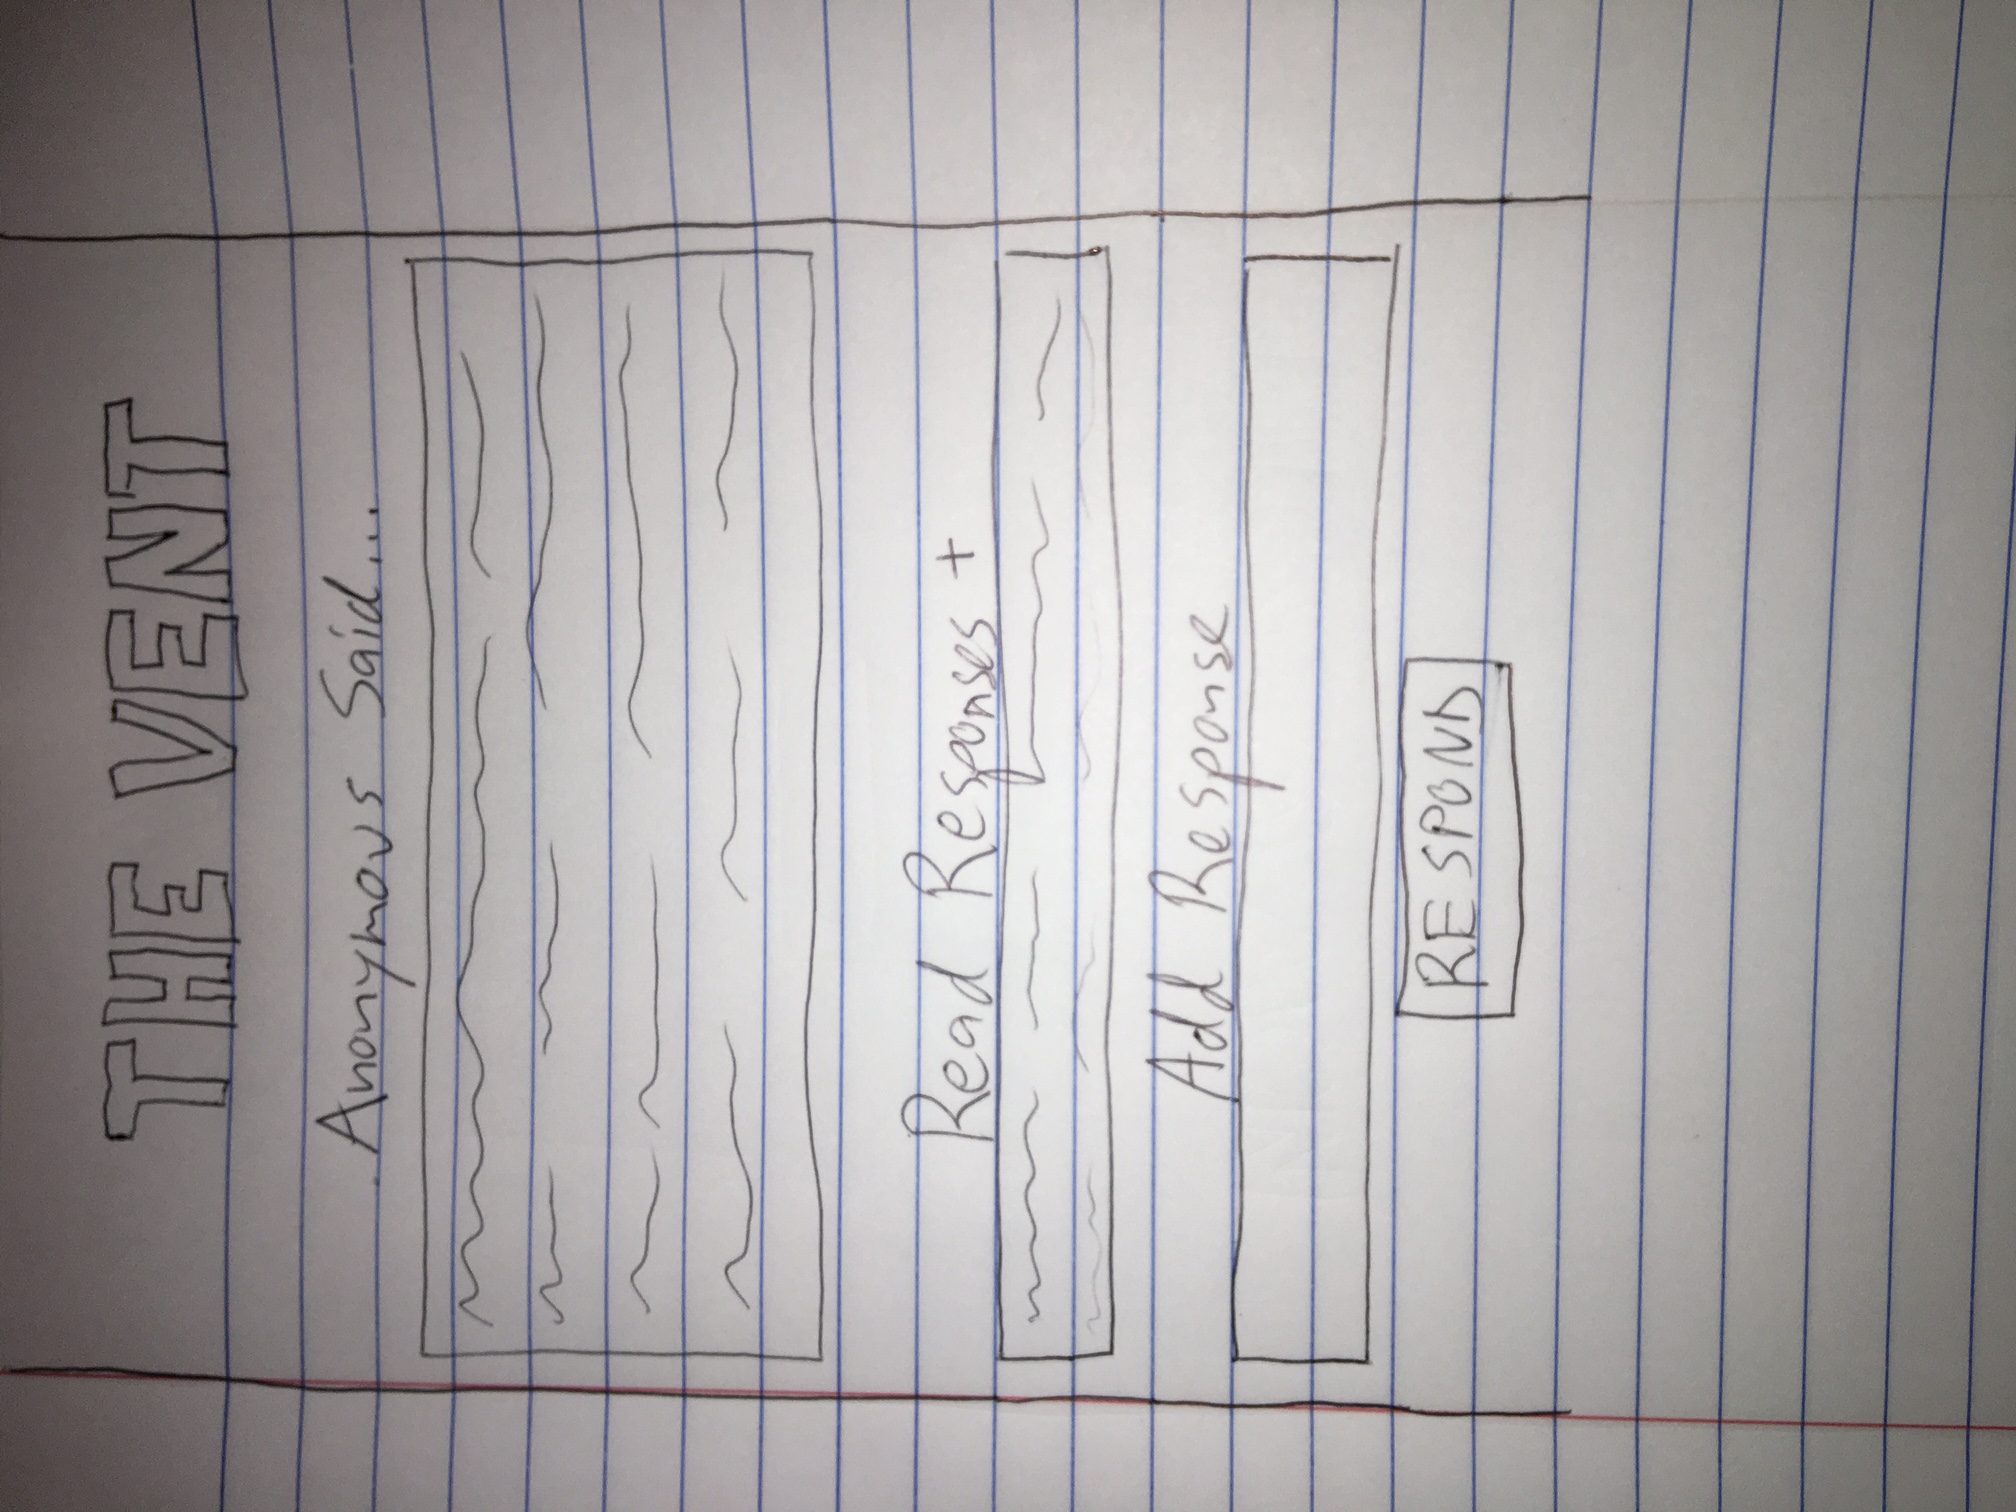 THE VENT
Anonymous Said...
Read Responses +
Add Response
RESPOND